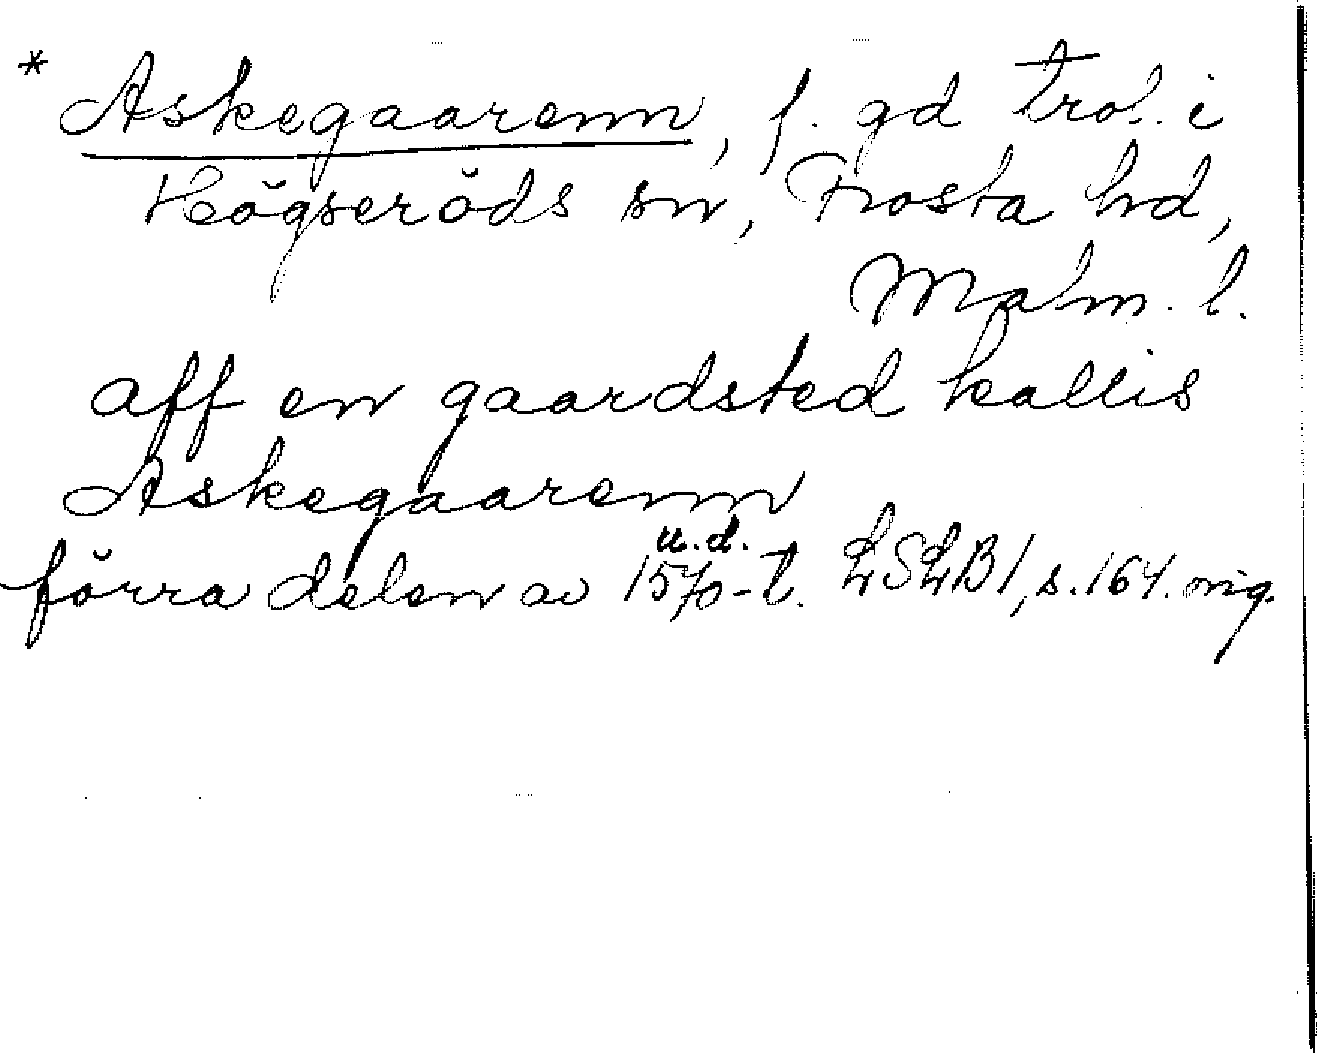 * Askegaarenn, f. gd trol. i
Högseröds sn, Frosta hd,
Malm. l.
aff en gaardsted kallis
Askegaarenn
u.d.
förra delen av 1570-t. LSLB1, s. 164. orig.